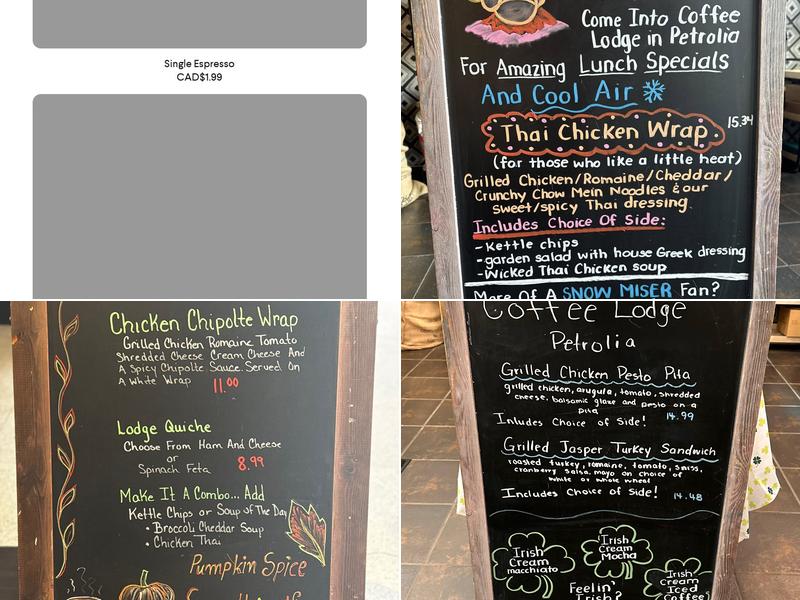 Single Espresso
CAD$1.99
Come Into Coffee
Lodge in Petrolia
For Amazing Lunch Specials
And Cool Air
Thai Chicken Wrap 15.34
(for those who like a little heat)
Grilled Chicken/Romaine/Cheddar/
Crunchy Chow Mein Noodles & our
sweet/spicy Thai dressing
Includes Choice Of Side:
-Kettle chips
-garden salad with house Greek dressing
-Wicked Thai Chicken soup
More Of A SNOW MISER Fan?
Chicken Chipolte Wrap
Grilled Chicken Romaine Tomato
Shredded Cheese Cream Cheese And
A Spicy Chipolte Sauce. Served On
A White Wrap 11.00
Lodge Quiche
Choose From Ham And Cheese
or
Spinach Feta 8.99
Make It A Combo... Add
Kettle Chips or Soup of The Day
• Broccoli Cheddar Soup
• Chicken Thai
Pumpkin Spice
Coffee Lodge
Petrolia
Grilled Chicken Pesto Pita
grilled chicken, arugula, tomato, shredded
cheese, balsamic glaze and pesto on a
pita
14.99
Inludes Choice of Side!
Grilled Jasper Turkey Sandwich
roasted turkey, romaine, tomato, swiss,
cranberry salsa, mayo on choice of
white or whole wheat
Includes Choice of Side! 14.48
Irish
Cream
macchiato
Irish
Cream
Mocha
Irish
Cream
Iced
Coffee
Feelin'
Irish?